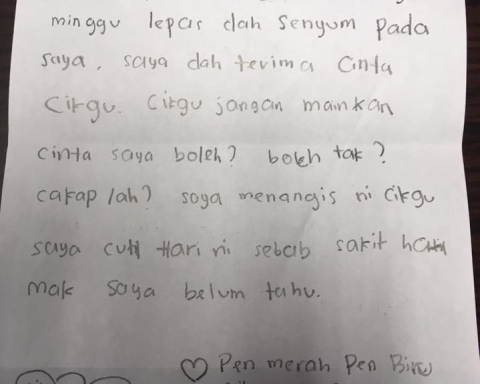 minggu lepas dah senyum pada
saya. saya dah terima cinta
cikgu. cikgu jangan mainkan
cinta saya boleh? boleh tak?
cakap lah? saya menangis ni cikgu
saya cuti Hari ni sebab sakit hati
mak saya belum tahu.
♡ Pen merah Pen Biru